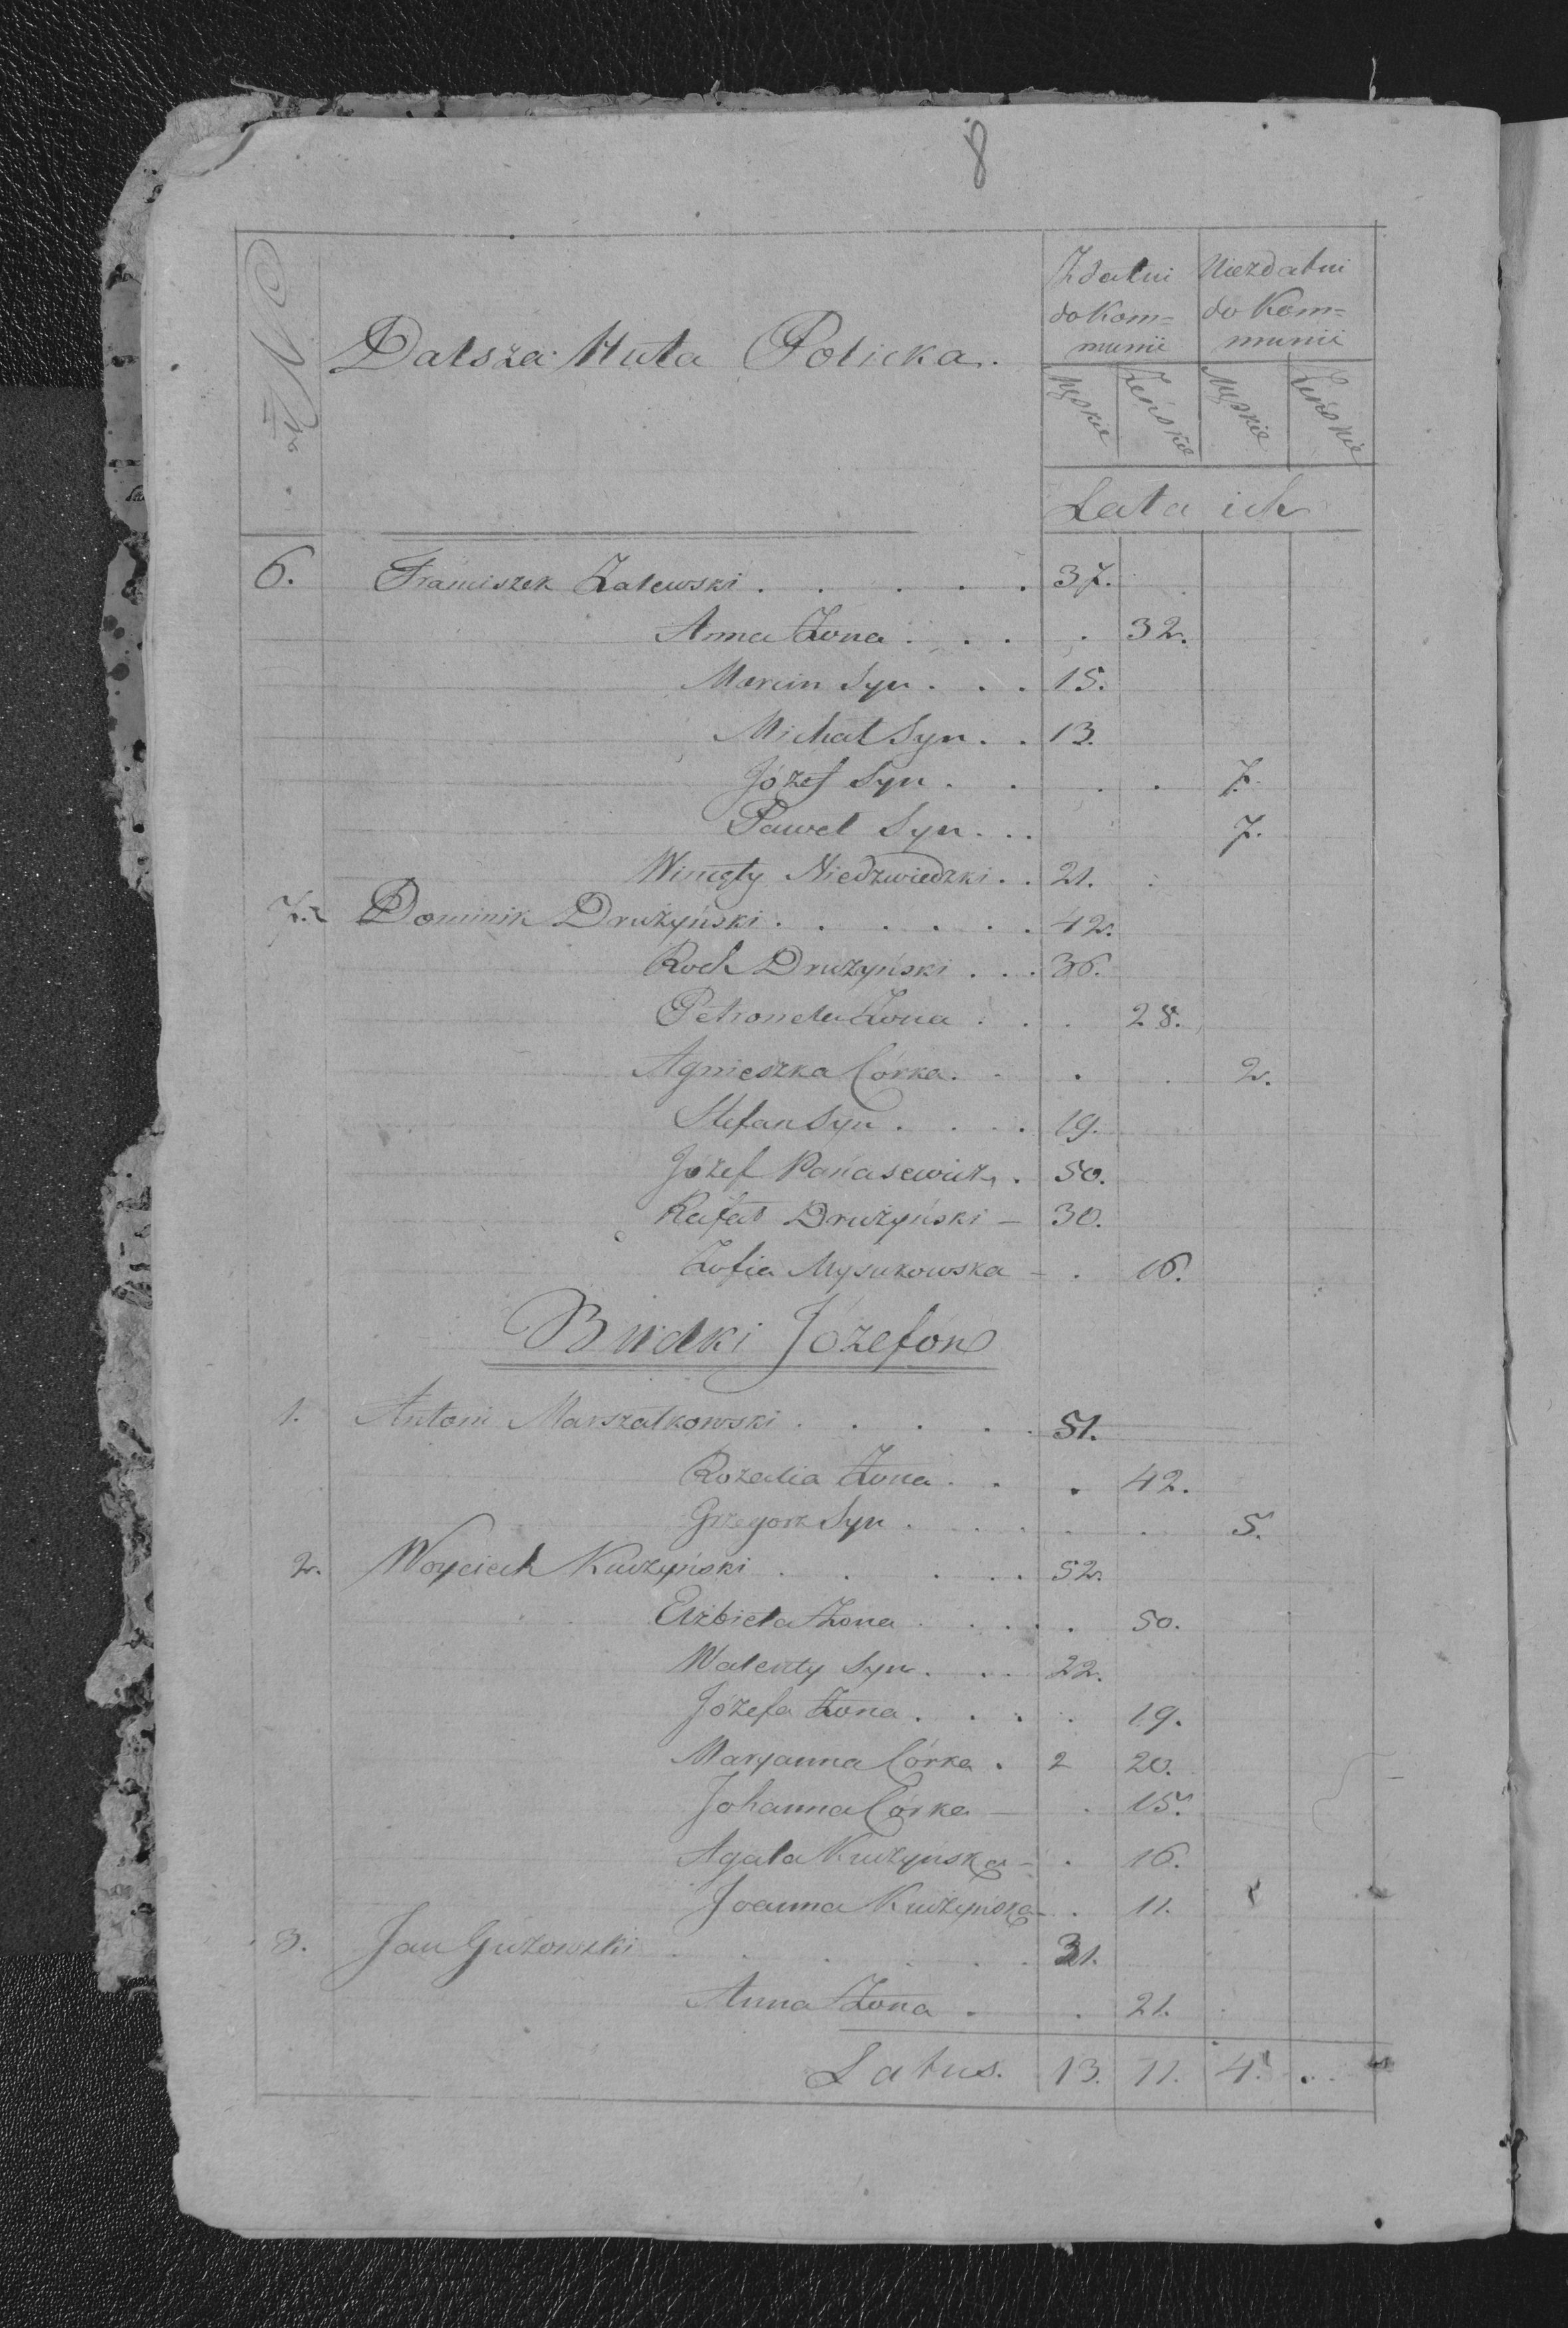 8
Nro
Zdatni do Kom=munii
Niezdatni do Kom=munii
Dalsza Huta Policka.
Męskie Żeńskie Męskie Żeńskie
Lata ich
6. Franciszek Zalewski . . . . . 37.
Anna Żona . . . . 32.
Marcin Syn . . . 15.
Michał Syn . . 13.
Józef Syn . . . . 7.
Paweł Syn . . . 7.
Wincęty Niedzwiedzki . . 21.
7. Dominik Drużyński . . . . . . 42.
Roch Drużyński . . . 36.
Petronela Żona . . . 28.
Agnieszka Córka . . . . 2.
Stefan Syn . . . . 19.
Józef Panasewicz . 50.
Rafał Drużyński – 30.
Zofia Mysukowska – . 16.
Budki Józefón
1. Antoni Marszałkowski . . . . . 51.
Rozalia Żona . . . 42.
Grzegorz Syn . . . . . 5.
2. Woyciech Kuczyński . . . . . 52.
Elżbieta Żona . . . . . 50.
Walenty Syn . . . 22.
Józefa Żona . . . . 19.
Maryanna Córka . 2 20.
Johanna Córka – . 15.
Agata Kuczyńska – . 16.
Joanna Kuczyńska – . 11.
3. Jan Guzowski . . . . . 31.
Anna Żona . . 21.
Latus. 13. 11. 4. .